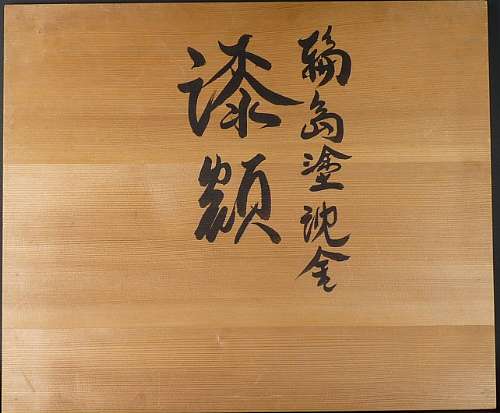 輪島塗沈金
漆額